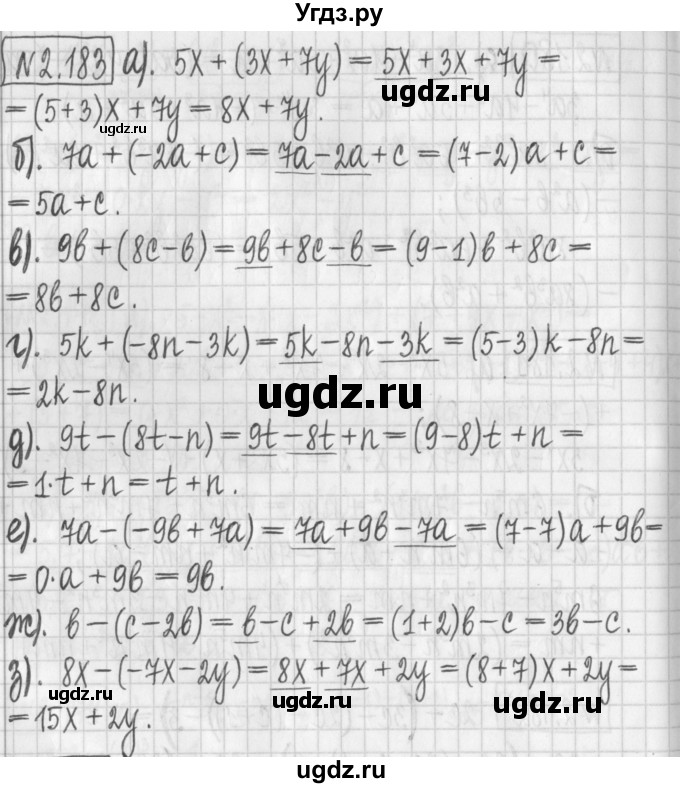 Угдз.ру
№2.183 а). 5x + (3x + 7y) = 5x + 3x + 7y =
ugdz.ru
= (5+3)x + 7y = 8x + 7y.
ugdz.ru
б). 7a + (-2a + c) = 7a - 2a + c = (7-2)a + c =
= 5a + c.
в). 9b + (8c - b) = 9b + 8c - b = (9-1)b + 8c =
= 8b + 8c.
г). 5k + (-8n - 3k) = 5k - 8n - 3k = (5-3)k - 8n =
ugdz.ru
= 2k - 8n.
д). 9t - (8t - n) = 9t - 8t + n = (9-8)t + n =
= 1·t + n = t + n.
е). 7a - (-9b + 7a) = 7a + 9b - 7a = (7-7)a + 9b =
= 0·a + 9b = 9b.
ж). b - (c - 2b) = b - c + 2b = (1+2)b - c = 3b - c.
з). 8x - (-7x - 2y) = 8x + 7x + 2y = (8+7)x + 2y =
ugdz.ru
ugdz.ru
= 15x + 2y.
ugdz.ru